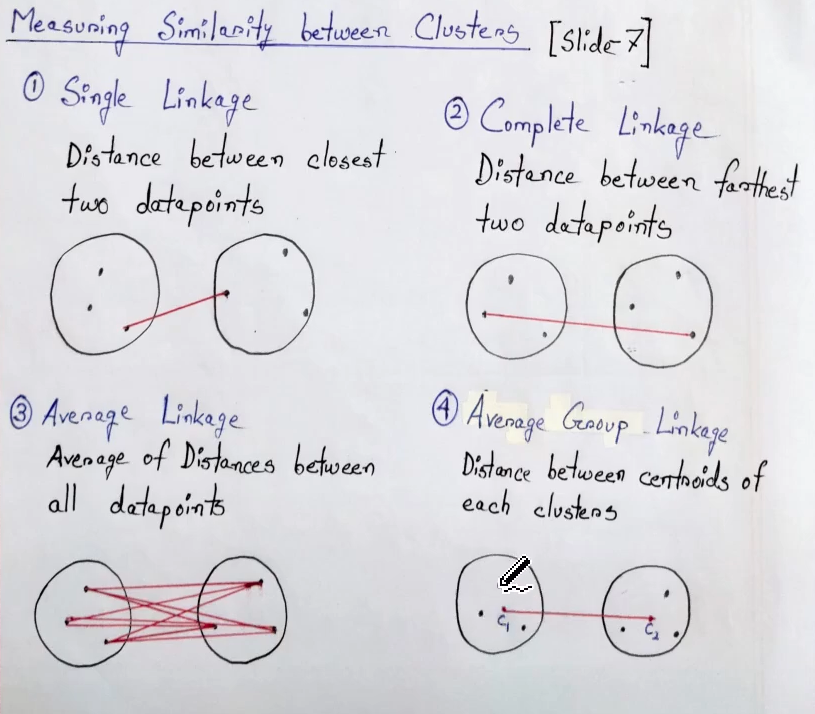 Measuring Similarity between Clusters [Slide-7]
① Single Linkage
Distance between closest
two datapoints
② Complete Linkage
Distance between farthest
two datapoints
③ Average Linkage
Average of Distances between
all datapoints
④ Average Group Linkage
Distance between centroids of
each clusters
C1
C2